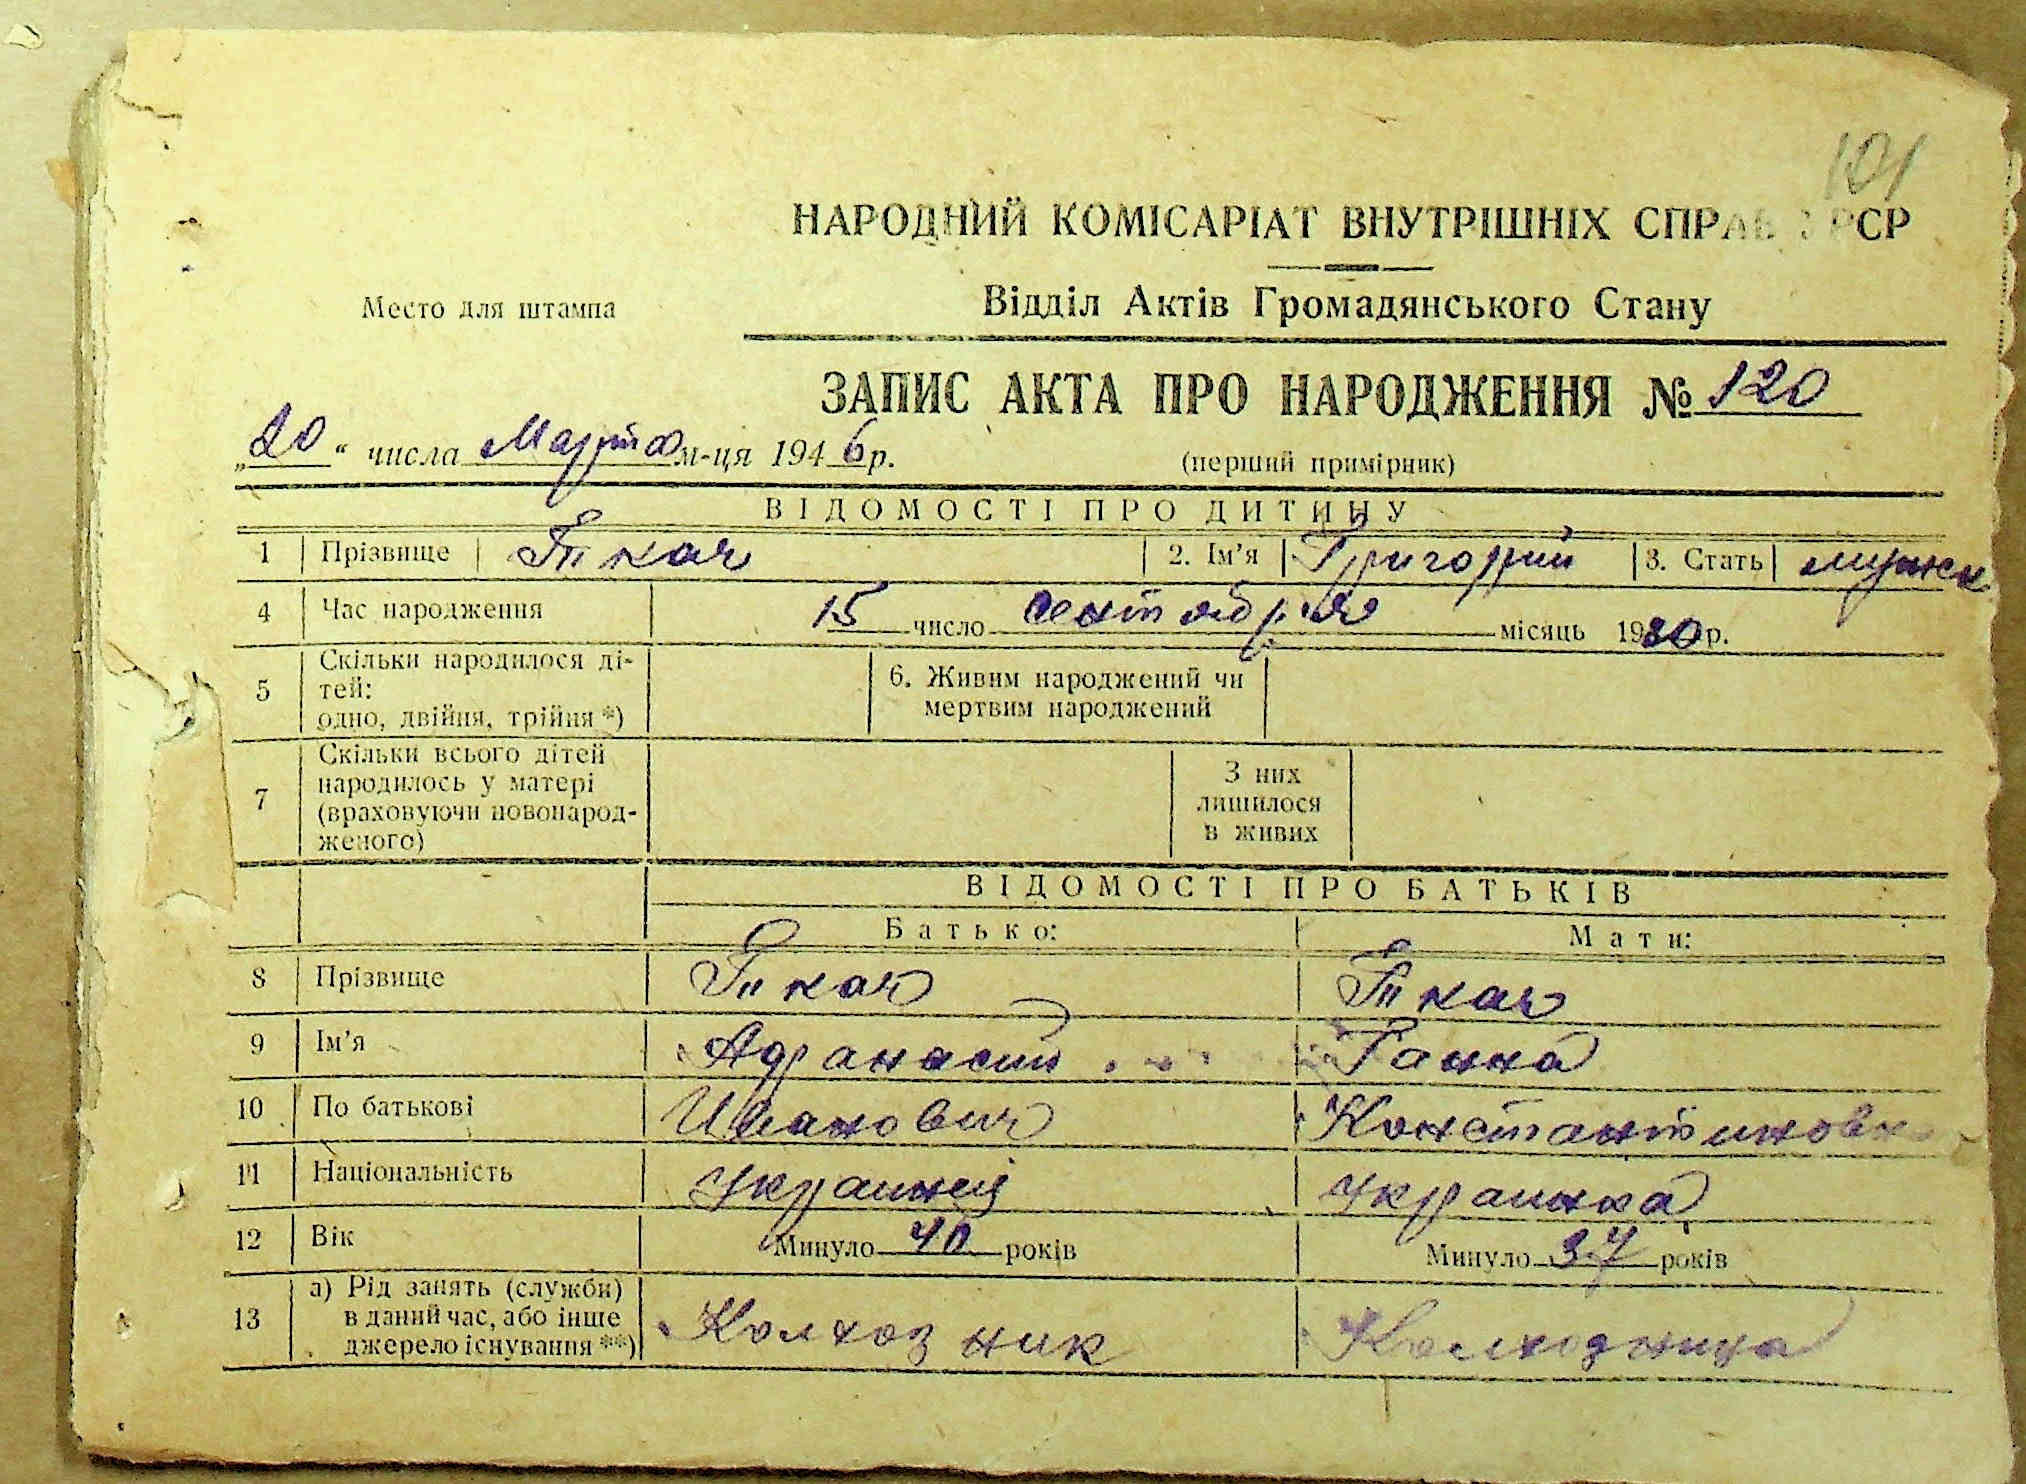 101
НАРОДНИЙ КОМІСАРІАТ ВНУТРІШНІХ СПРАВ УРСР
Место для штампа
Відділ Актів Громадянського Стану
ЗАПИС АКТА ПРО НАРОДЖЕННЯ № 120
„20“ числа Марта м-ця 1946 р.
(перший примірник)
ВІДОМОСТІ ПРО ДИТИНУ
1 Прізвище Ткач 2. Ім'я Григорий 3. Стать мужск
4 Час народження 15 число сентября місяць 1930 р.
5 Скільки народилося ді-
тей:
одно, двійня, трійня *)
6. Живим народжений чи
мертвим народжений
7 Скільки всього дітей
народилось у матері
(враховуючи новонарод-
женого)
З них
лишилося
в живих
ВІДОМОСТІ ПРО БАТЬКІВ
Батько: Мати:
8 Прізвище Ткач Ткач
9 Ім'я Афанасий Ганна
10 По батькові Иванович Константиновн
11 Національність Украинец Украинка
12 Вік Минуло 40 років Минуло 37 років
13 а) Рід занять (служби)
в даний час, або інше
джерело існування **)
Колхозник Колхозница